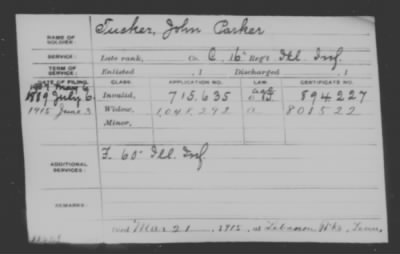 NAME OF SOLDIER: Tucker, John Parker
SERVICE: Late rank, Co. C, 16 Reg't Ill. Inf.
TERM OF SERVICE: Enlisted , 1 Discharged , 1
DATE OF FILING. CLASS. APPLICATION NO. LAW. CERTIFICATE NO.
1889 July 6 Invalid, 715.635 894.227
1915 June 3 Widow, 1,048,292 801522
Minor,
ADDITIONAL SERVICES: F. 65 Ill. Inf.
REMARKS:
Died Mar 21, 1915, at Lebanon, Tenn.